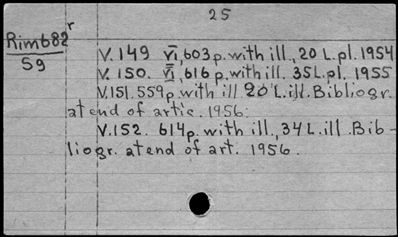 25
Rim682r
S9
V.149 VI, 603p. with ill., 20 L. pl. 1954
V. 150. VI, 616 p, with ill. 35 L. pl. 1955
V.151. 559p. with ill 20 L. ill. Bibliogr.
at end of artic. 1956.
V.152. 614p. with ill., 34 L. ill. Bib-
liogr. at end of art. 1956.